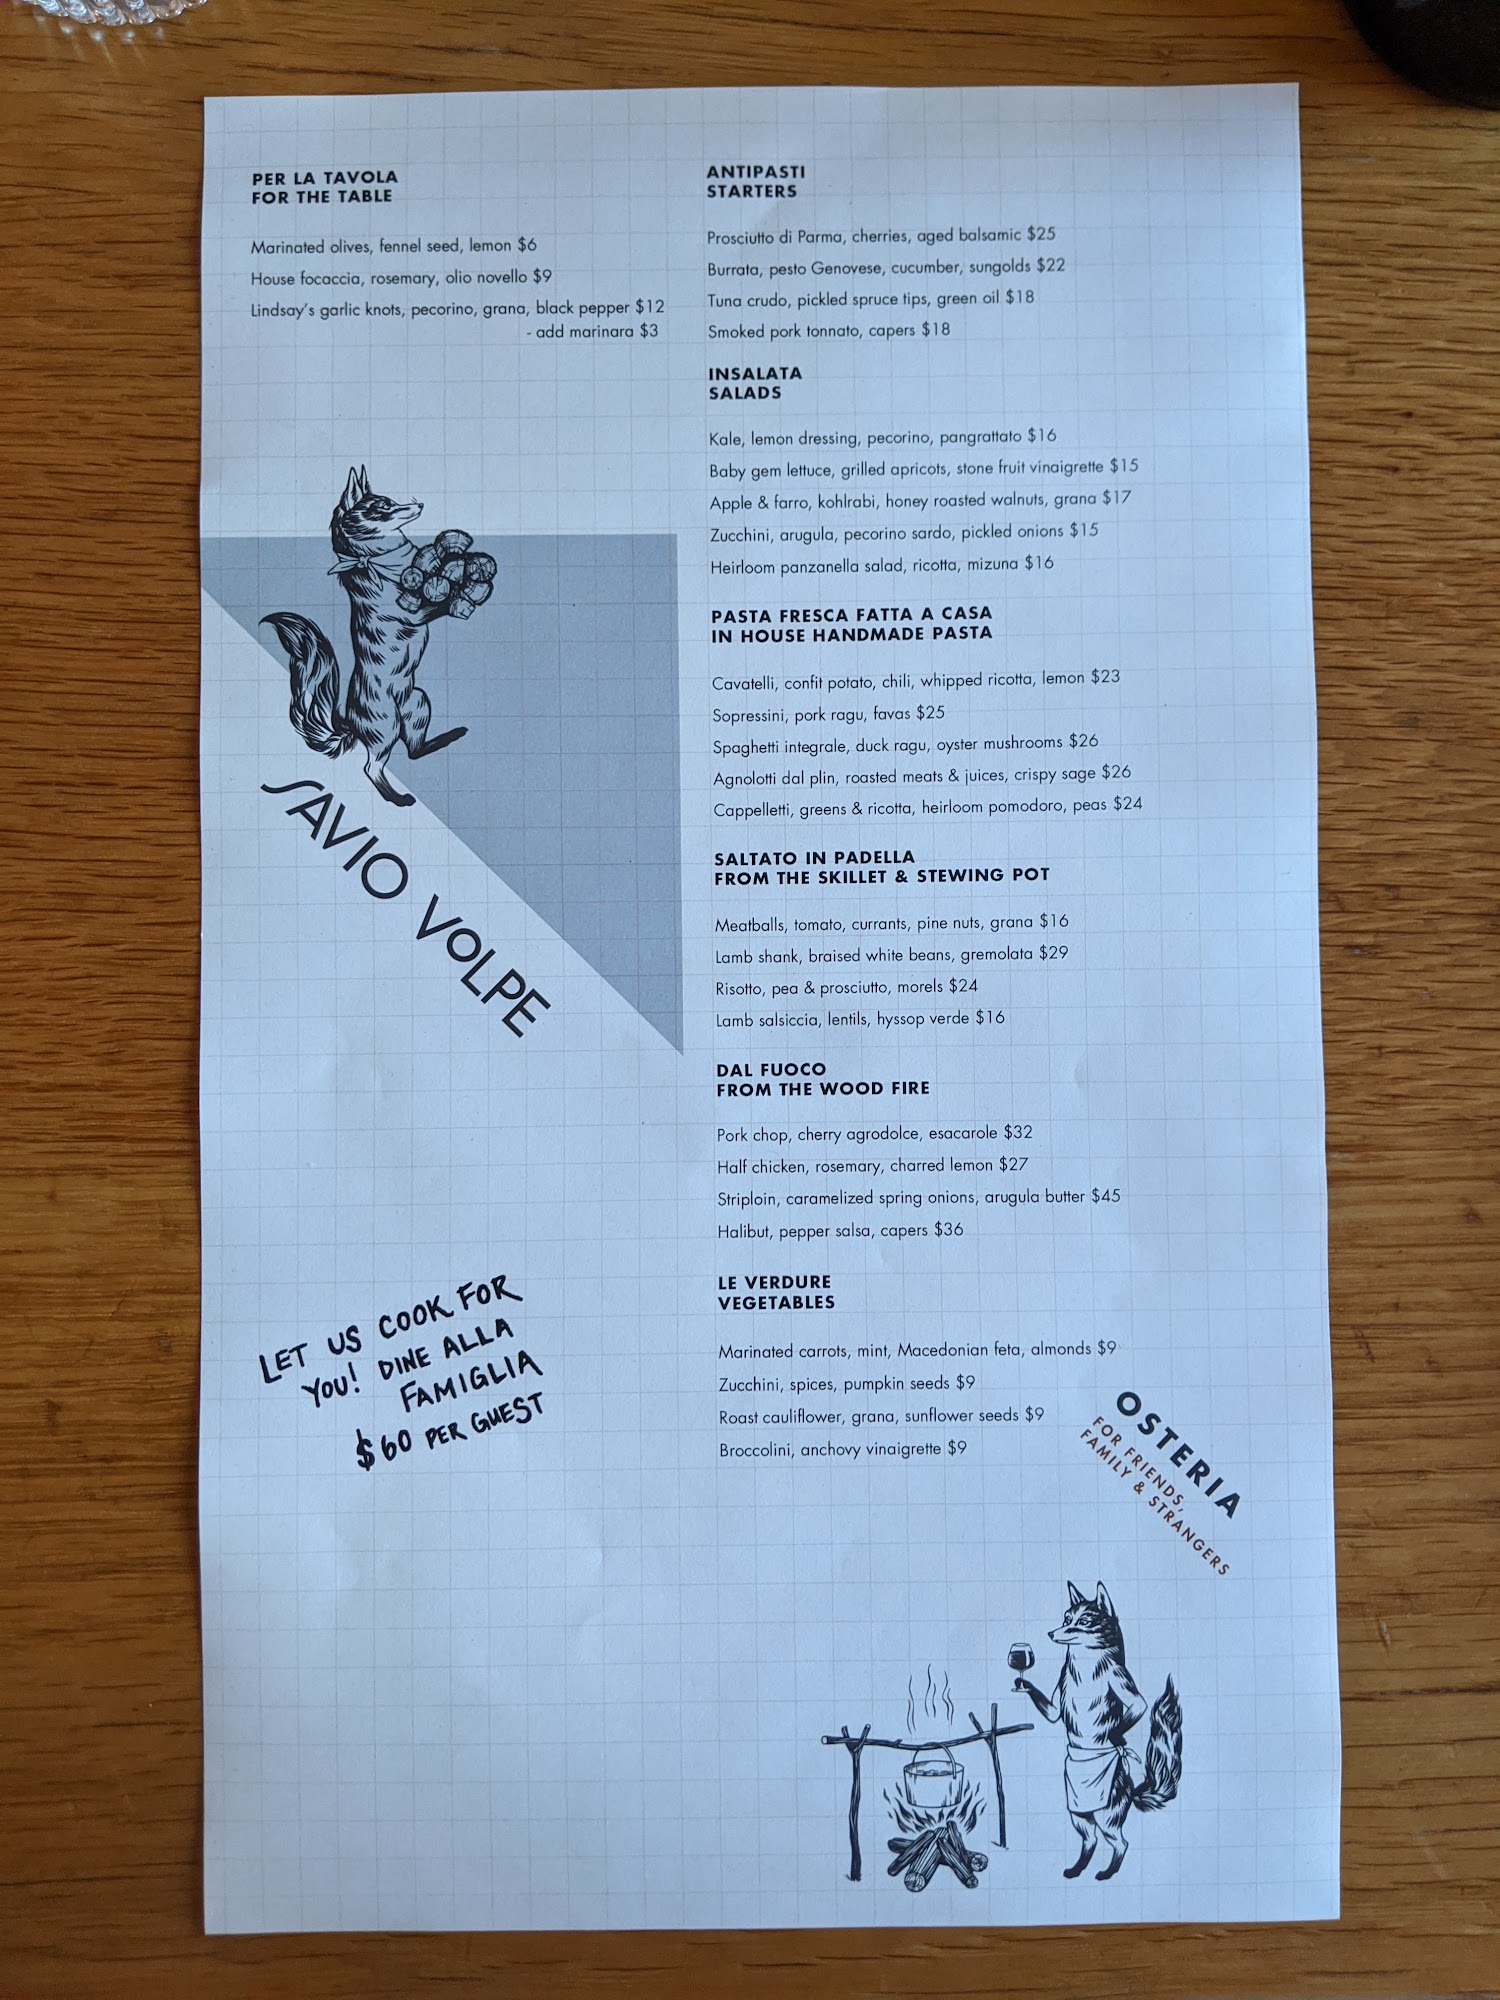 PER LA TAVOLA
FOR THE TABLE
Marinated olives, fennel seed, lemon $6
House focaccia, rosemary, olio novello $9
Lindsay's garlic knots, pecorino, grana, black pepper $12
- add marinara $3
SAVIO VOLPE
LET US COOK FOR
YOU! DINE ALLA
FAMIGLIA
$60 PER GUEST
ANTIPASTI
STARTERS
Prosciutto di Parma, cherries, aged balsamic $25
Burrata, pesto Genovese, cucumber, sungolds $22
Tuna crudo, pickled spruce tips, green oil $18
Smoked pork tonnato, capers $18
INSALATA
SALADS
Kale, lemon dressing, pecorino, pangrattato $16
Baby gem lettuce, grilled apricots, stone fruit vinaigrette $15
Apple & farro, kohlrabi, honey roasted walnuts, grana $17
Zucchini, arugula, pecorino sardo, pickled onions $15
Heirloom panzanella salad, ricotta, mizuna $16
PASTA FRESCA FATTA A CASA
IN HOUSE HANDMADE PASTA
Cavatelli, confit potato, chili, whipped ricotta, lemon $23
Sopressini, pork ragu, favas $25
Spaghetti integrale, duck ragu, oyster mushrooms $26
Agnolotti dal plin, roasted meats & juices, crispy sage $26
Cappelletti, greens & ricotta, heirloom pomodoro, peas $24
SALTATO IN PADELLA
FROM THE SKILLET & STEWING POT
Meatballs, tomato, currants, pine nuts, grana $16
Lamb shank, braised white beans, gremolata $29
Risotto, pea & prosciutto, morels $24
Lamb salsiccia, lentils, hyssop verde $16
DAL FUOCO
FROM THE WOOD FIRE
Pork chop, cherry agrodolce, esacarole $32
Half chicken, rosemary, charred lemon $27
Striploin, caramelized spring onions, arugula butter $45
Halibut, pepper salsa, capers $36
LE VERDURE
VEGETABLES
Marinated carrots, mint, Macedonian feta, almonds $9
Zucchini, spices, pumpkin seeds $9
Roast cauliflower, grana, sunflower seeds $9
Broccolini, anchovy vinaigrette $9
OSTERIA
FOR FRIENDS,
FAMILY & STRANGERS